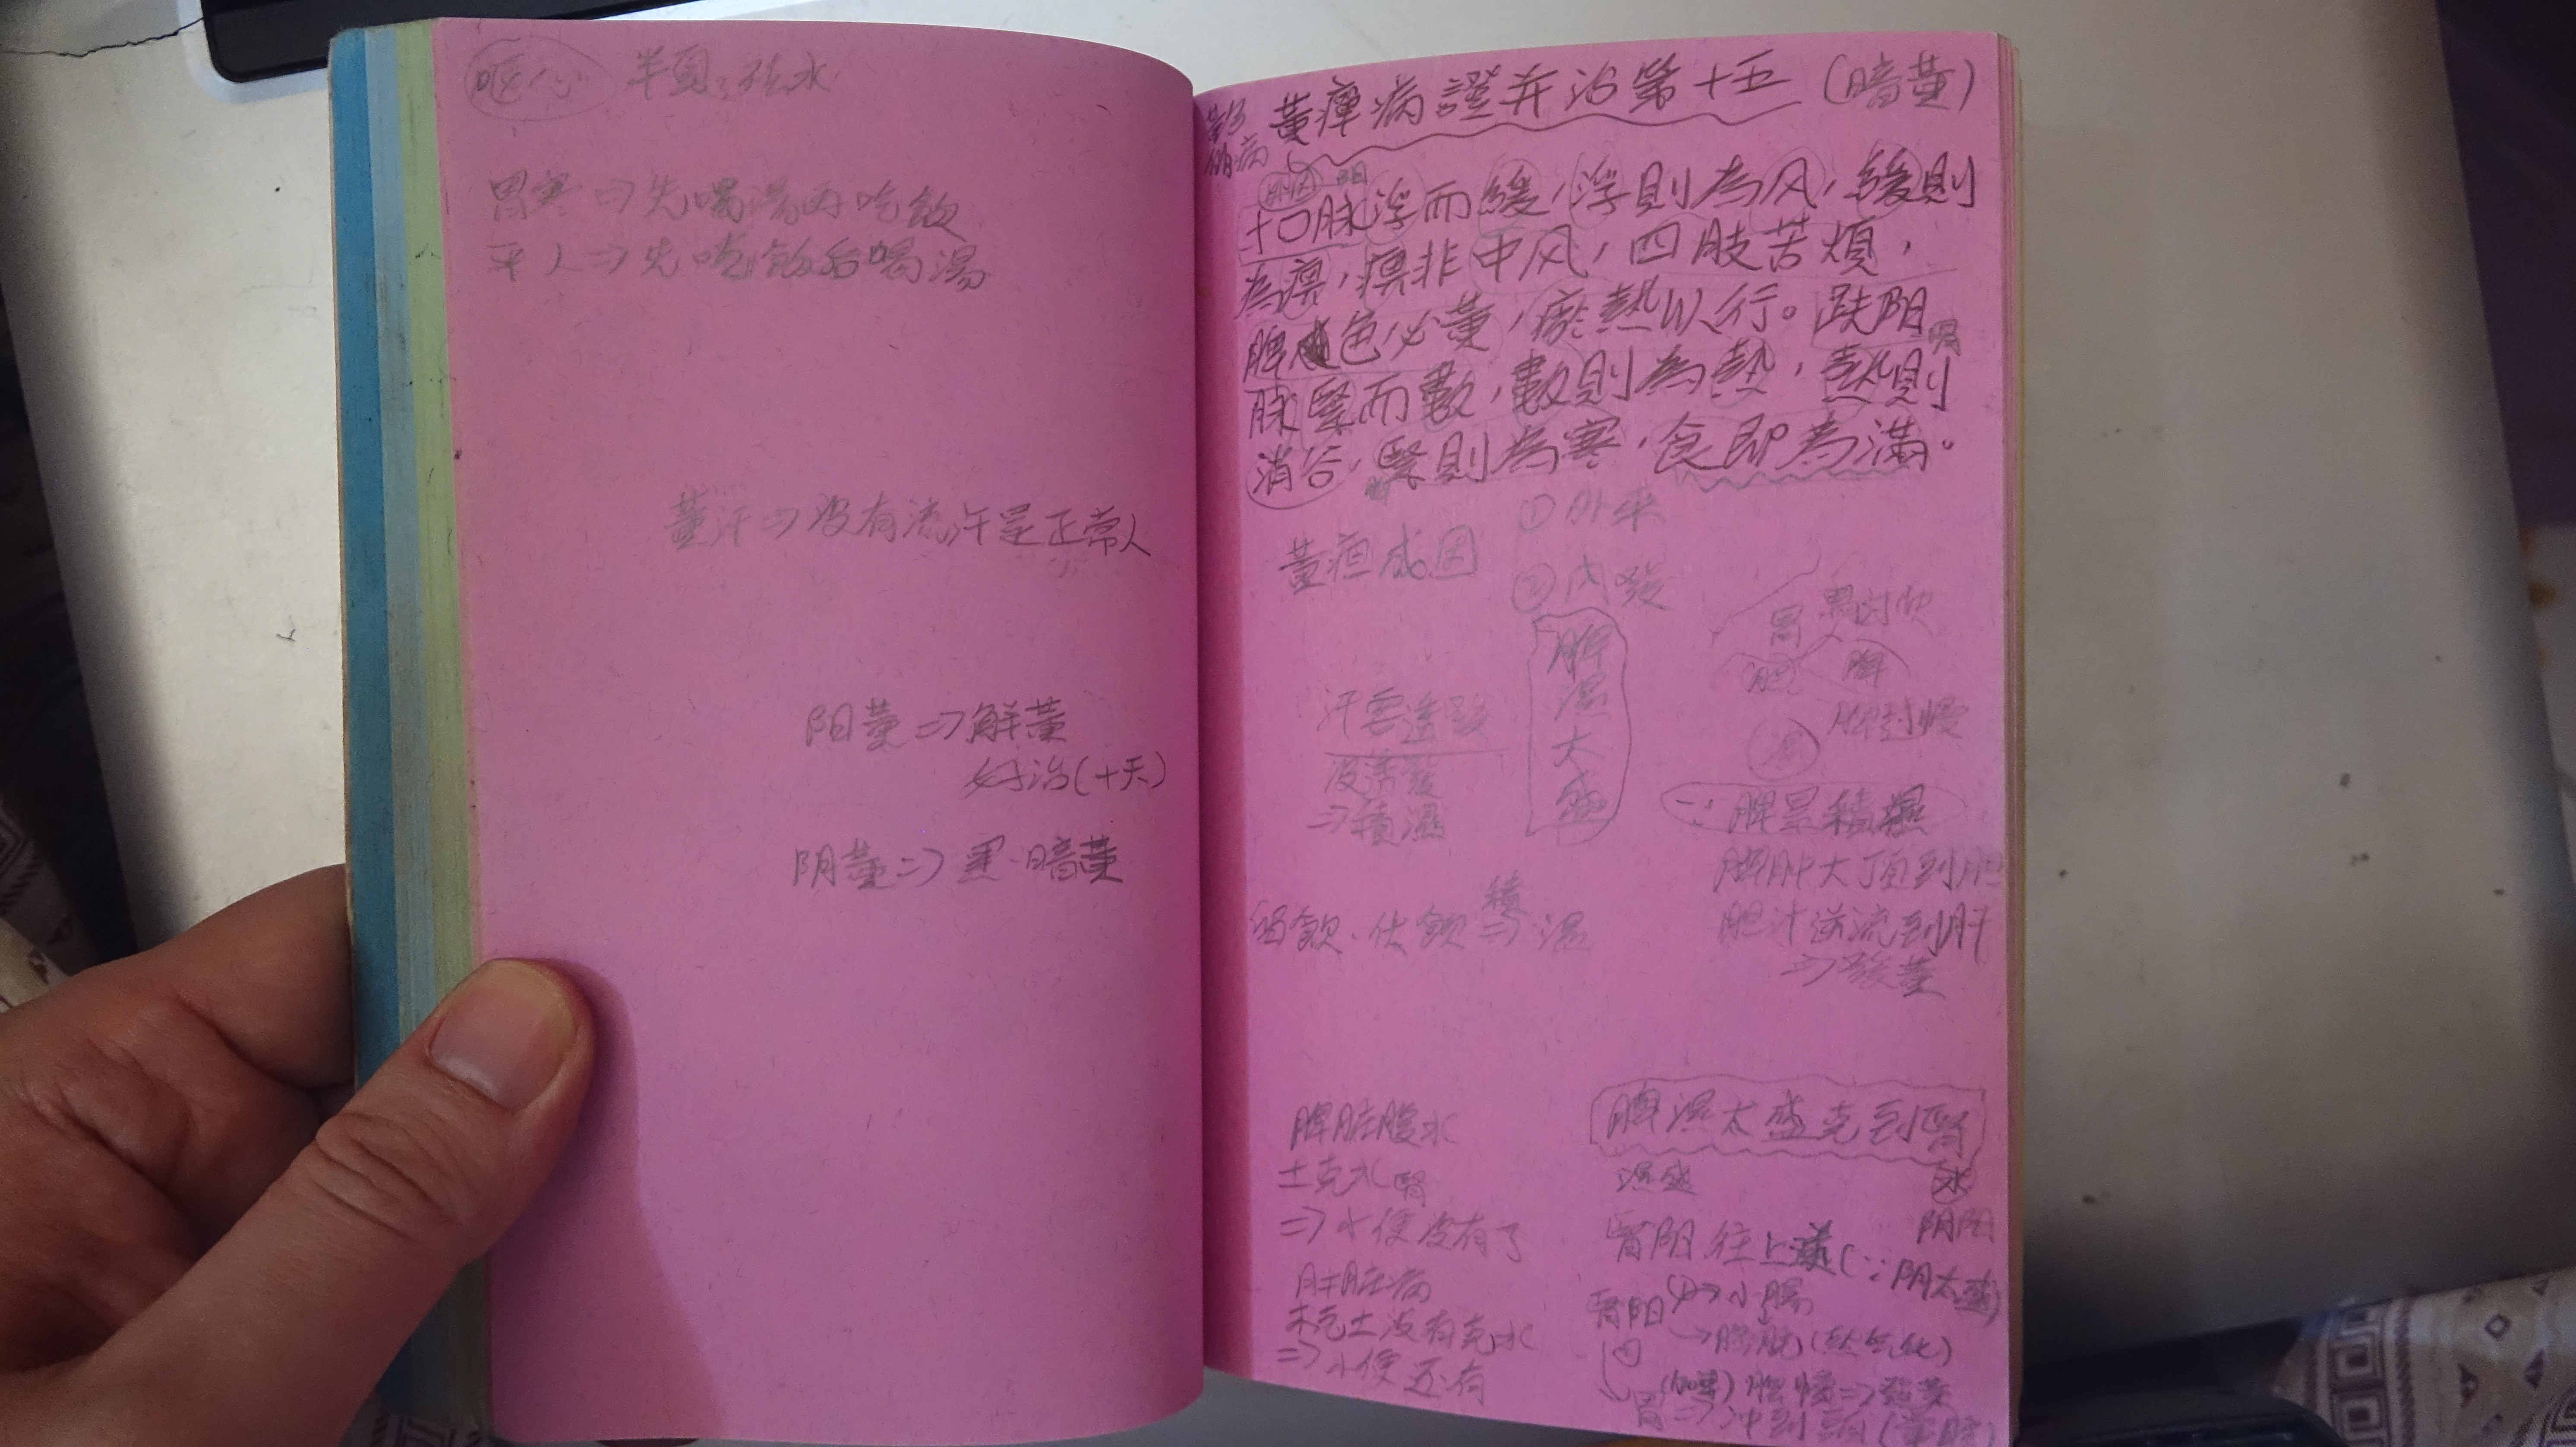 噁心 半夏：祛水
胃寒⇒先喝湯再吃飯
平人⇒先吃飯后喝湯
黃汗⇒沒有流汗是正常人
阳黃⇒鮮黃
好治(十天)
阴黃⇒黑·暗黃
黃癉病證并治第十五 (暗黃)
寸口脉浮而緩，浮則為风，緩則
為痹，痹非中风，四肢苦煩，
脾色必黃，瘀熱以行。趺阳
脉緊而數，數則為熱，熱則
消谷，緊則為寒，食即為滿。
黃疸成因
① 外來
② 內發
脾濕太盛
汗要透發
沒透發
⇒積濕
留飲、伏飲 積⇒ 濕
胃 胃討快
脾
脾討慢
∵脾累積濕
脾腫大頂到胆
胆汁逆流到肝
⇒發黃
脾脏腹水
土克水腎
⇒小便沒有了
肝脏病
木克土沒有克水
⇒小便还有
脾濕太盛克到腎
濕盛 水
阴阳
腎阳往上 (∵阴太盛)
腎阳 ⇒小腸
→膀胱 (氣化)
⇒發黃
胃⇒冲到頭